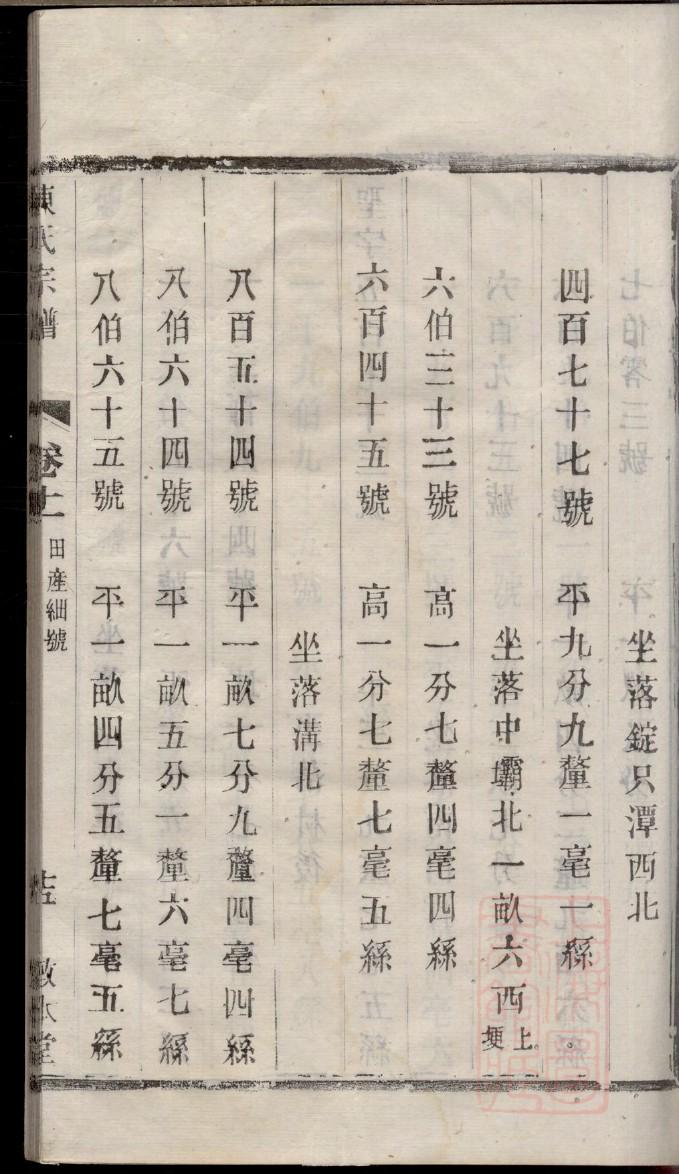 坐落錠只潭西北
四百七十七號 平九分九釐一毫一絲
坐落中壩北一畝六西上埂
六伯三十三號 高一分七釐四毫四絲
六百四十五號 高一分七釐七毫五絲
坐落溝北
八百五十四號 平一畝七分九釐四毫四絲
八伯六十四號 平一畝五分一釐六毫七絲
八伯六十五號 平一畝四分五釐七毫五絲
陳氏宗譜 卷十一 田產細號 敦本堂